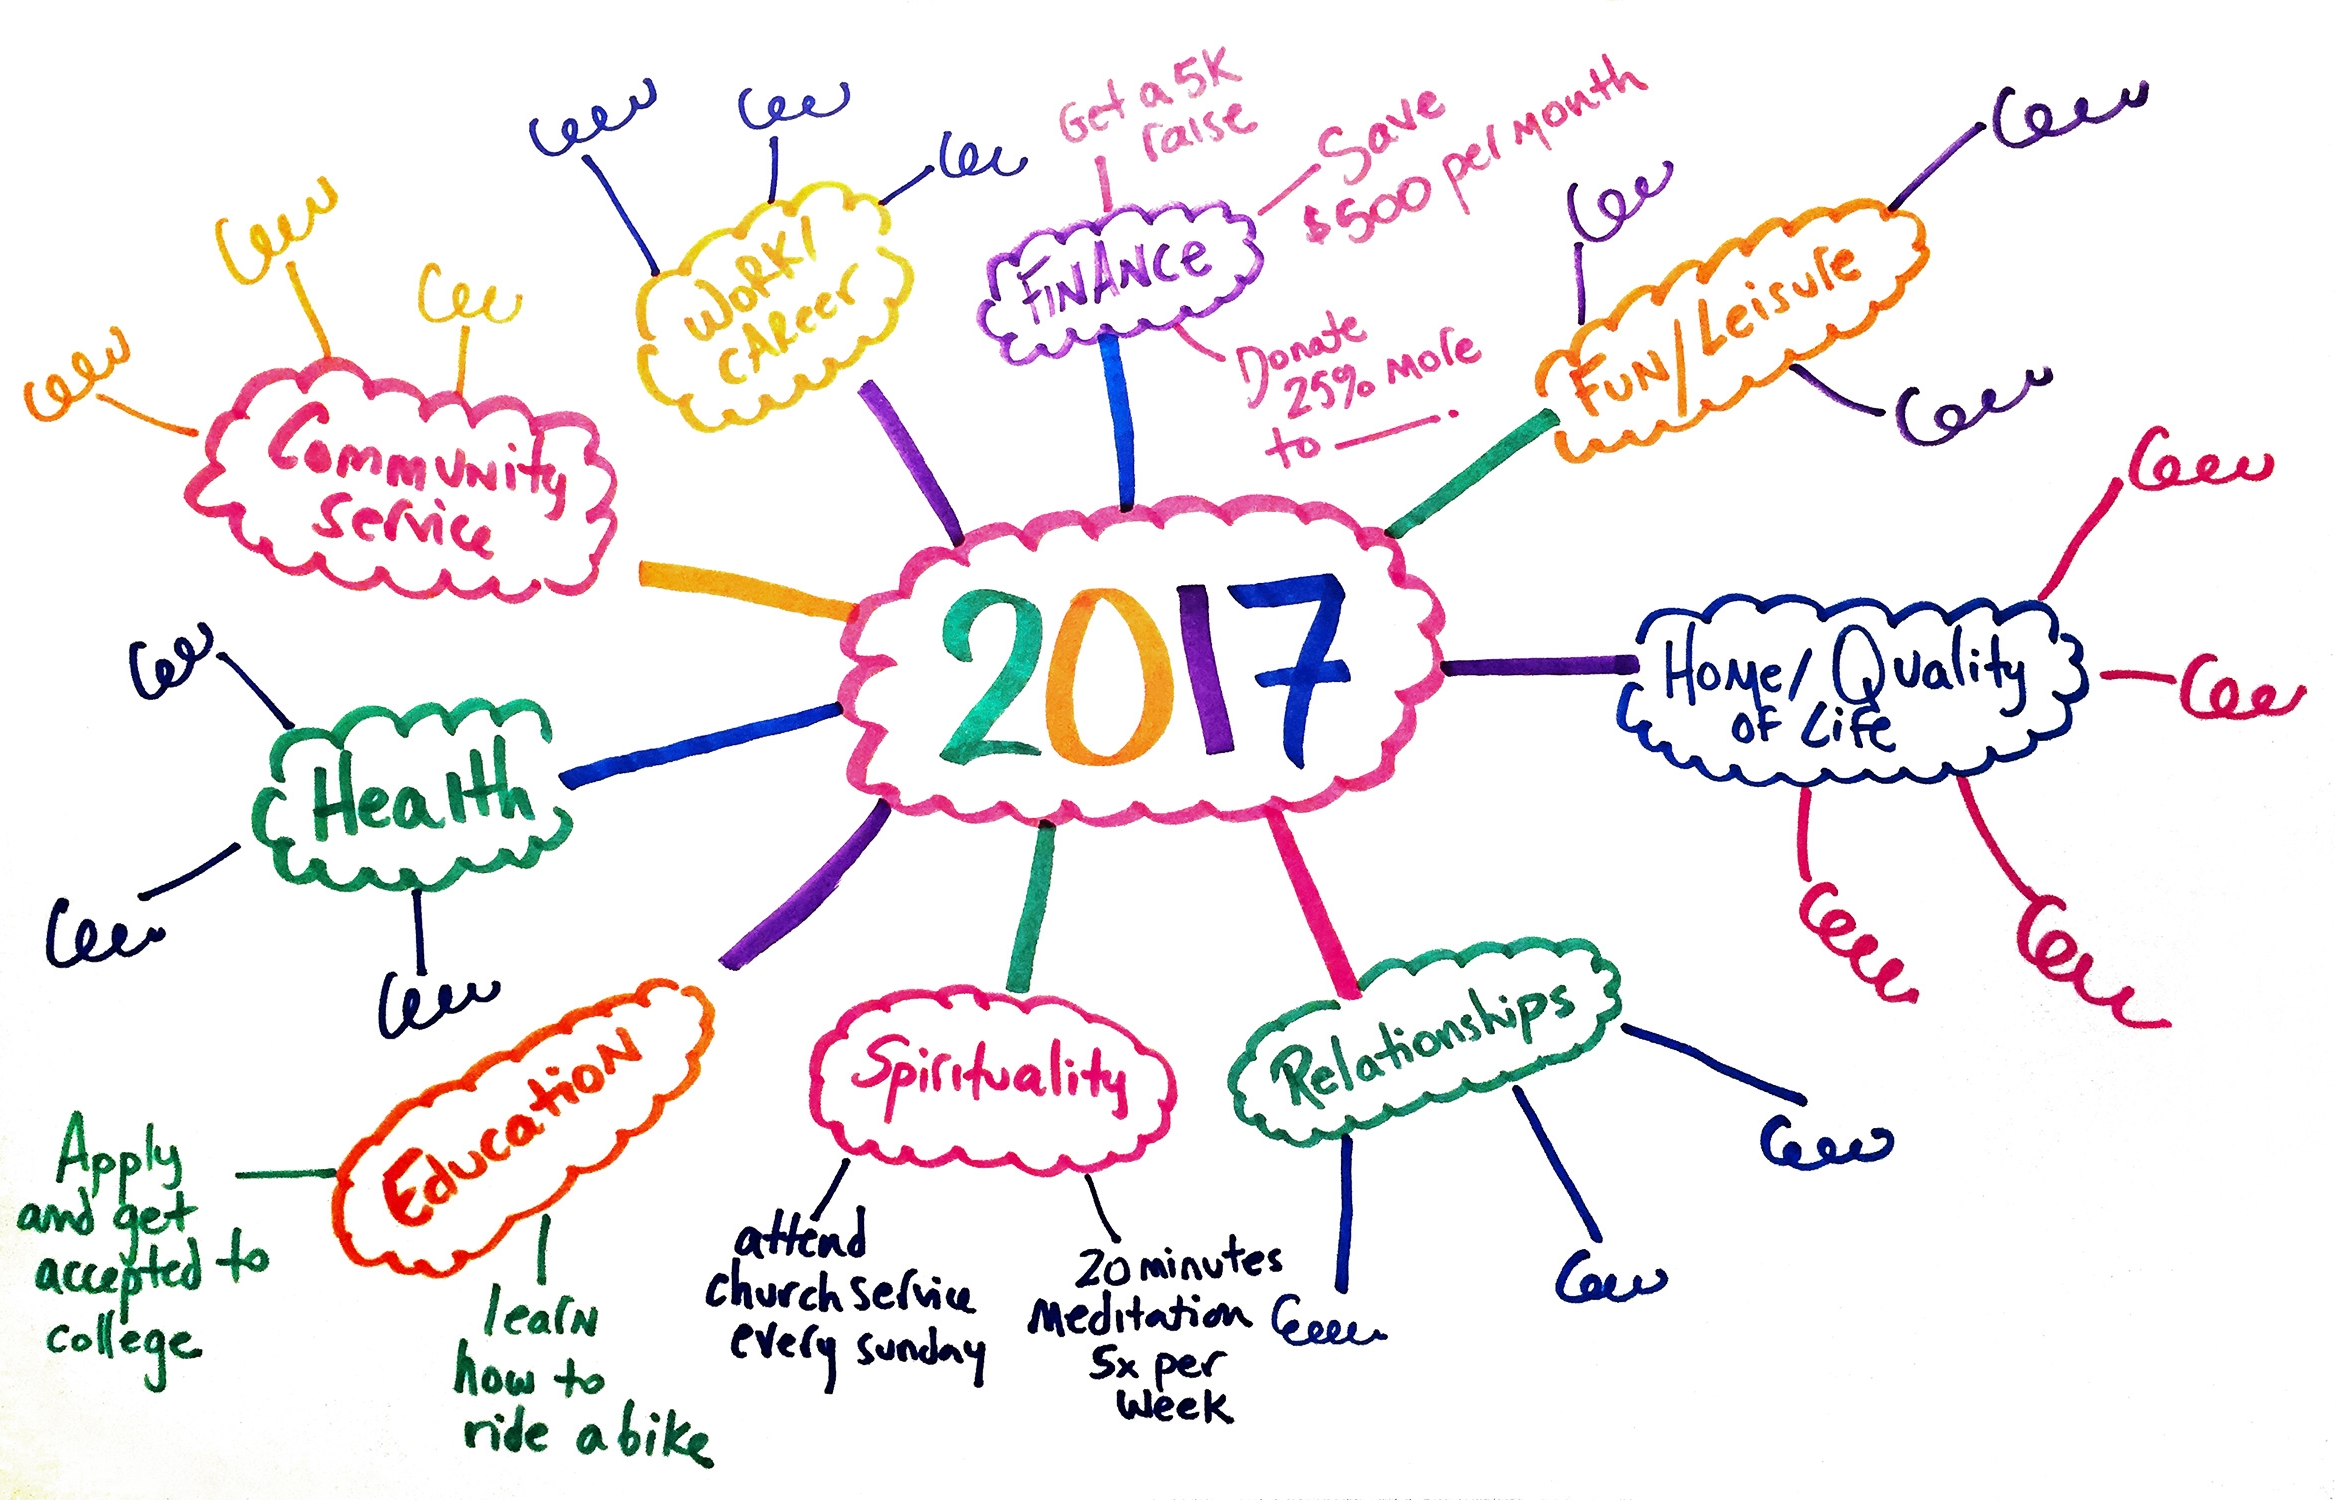 Get a 5K
raise
Save
$500 per month
WORK/
CAReer
FINANCE
Fun/Leisure
Donate
25% more
to
Community
Service
2017
Home/Quality
of Life
Health
Education
Spirituality
Relationships
Apply
and get
accepted to
college
learn
how to
ride a bike
attend
church service
every sunday
20 minutes
Meditation
5x per
week